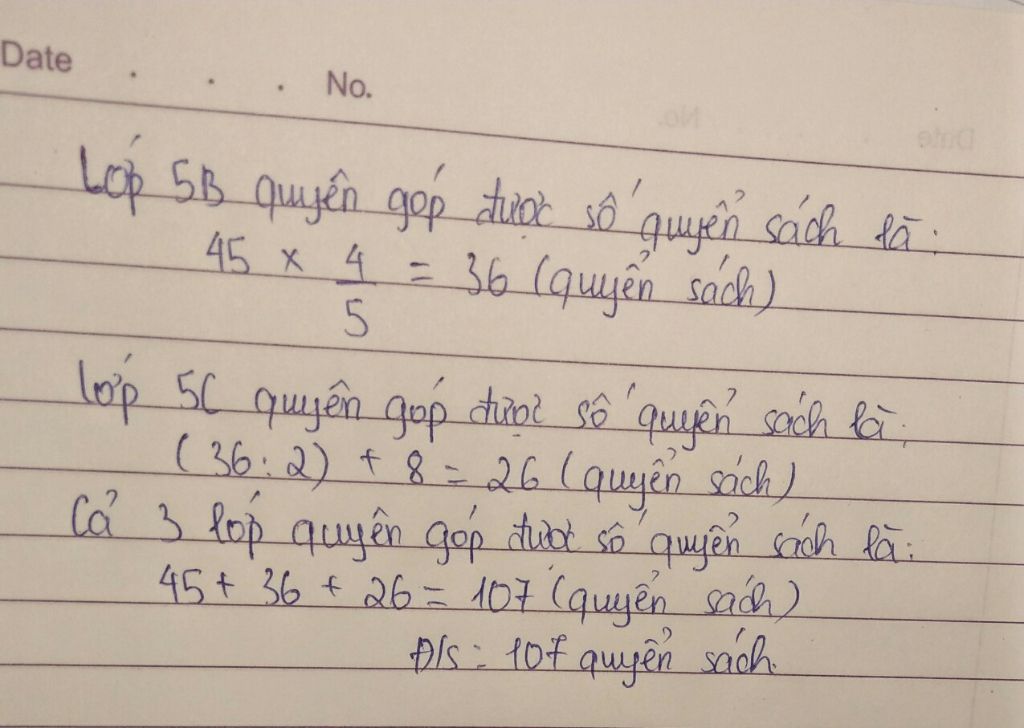 Date . . . No.
Lớp 5B quyên góp được số quyển sách là:
45 × 4/5 = 36 (quyển sách)
Lớp 5C quyên góp được số quyển sách là:
(36 : 2) + 8 = 26 (quyển sách)
Cả 3 lớp quyên góp được số quyển sách là:
45 + 36 + 26 = 107 (quyển sách)
Đ/S: 107 quyển sách.